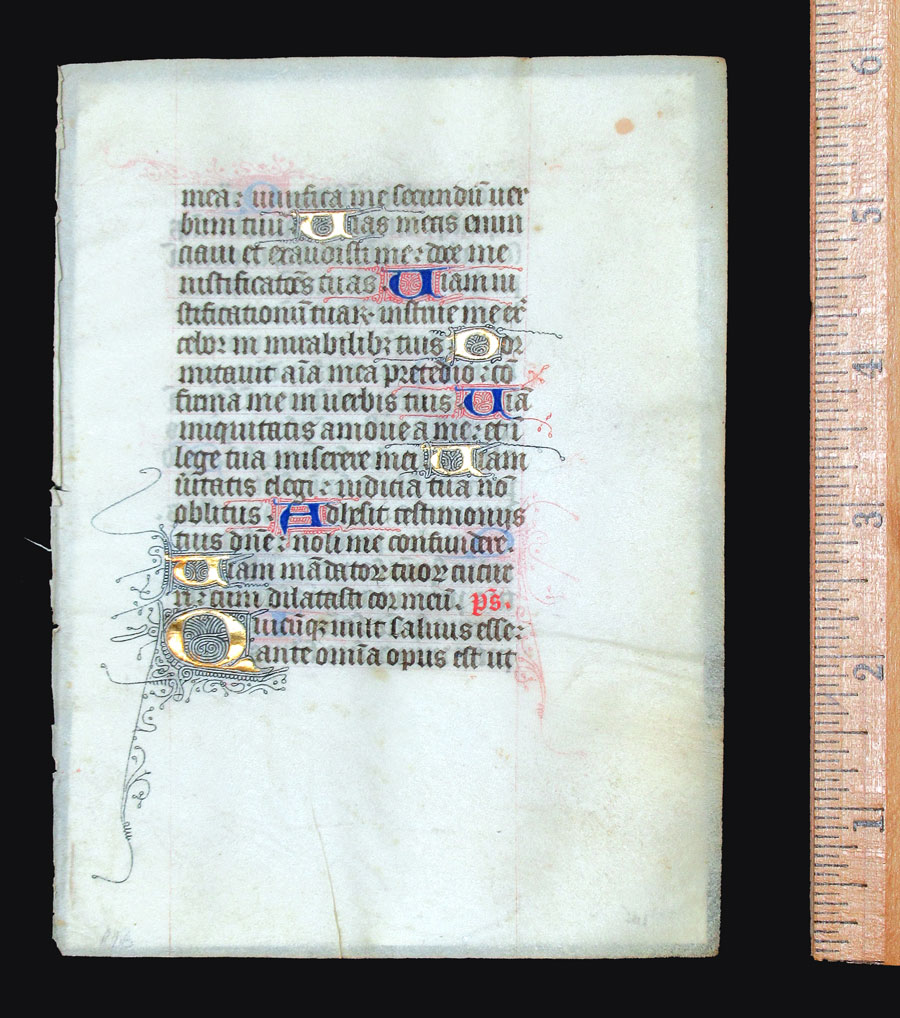 mea: uiuifica me secundū uer
bum tuū Uias meas enun
ciaui et exaudisti me: doce me
iustificatōes tuas Uiam iu
stificationū tuaꝝ instrue me et ex
cebor in mirabilibꝫ tuis Dor
mitauit aīa mea pre tedio: cō
firma me in uerbis tuis Uiā
iniquitatis amoue a me: et ī
lege tua miserere mei Uiam
ūitatis elegi: iudicia tua nō
oblitus: Adhesit testimonijs
tuis dn̄e: noli me confundere:
Uiam mādatoꝝ tuoꝝ cucur
ri: cum dilatasti cor meū. ps̄.
Quicūqꝫ uult saluus esse:
ante omīa opus est ut
6
5
4
3
2
1